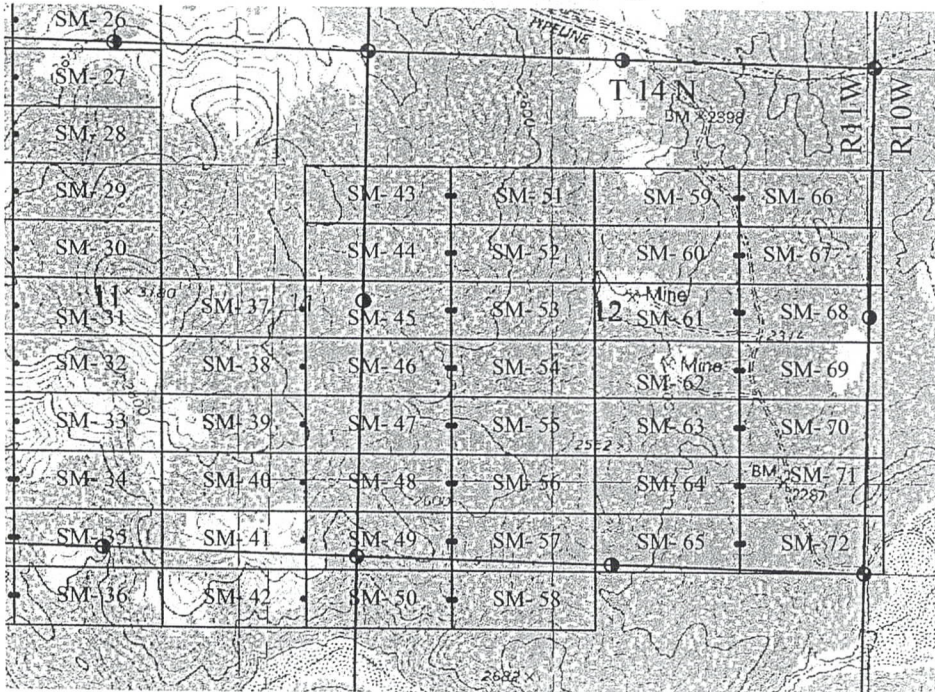 SM- 26
PIPELINE
SM- 27
T 14 N
R11W
R10W
BM × 2398
SM- 28
SM- 29
SM- 43
SM- 51
SM- 59
SM- 66
SM- 30
SM- 44
SM- 52
SM- 60
SM- 67
11
× 3180
SM- 31
SM- 37
SM- 45
SM- 53
12
Mine
SM- 61
SM- 68
2314
SM- 32
SM- 38
SM- 46
SM- 54
Mine
SM- 62
SM- 69
SM- 33
SM- 39
SM- 47
SM- 55
2552 ×
SM- 63
SM- 70
SM- 34
SM- 40
SM- 48
2600
SM- 56
SM- 64
BM
SM- 71
2287
SM- 35
SM- 41
SM- 49
SM- 57
SM- 65
SM- 72
SM- 36
SM- 42
SM- 50
SM- 58
2682 ×